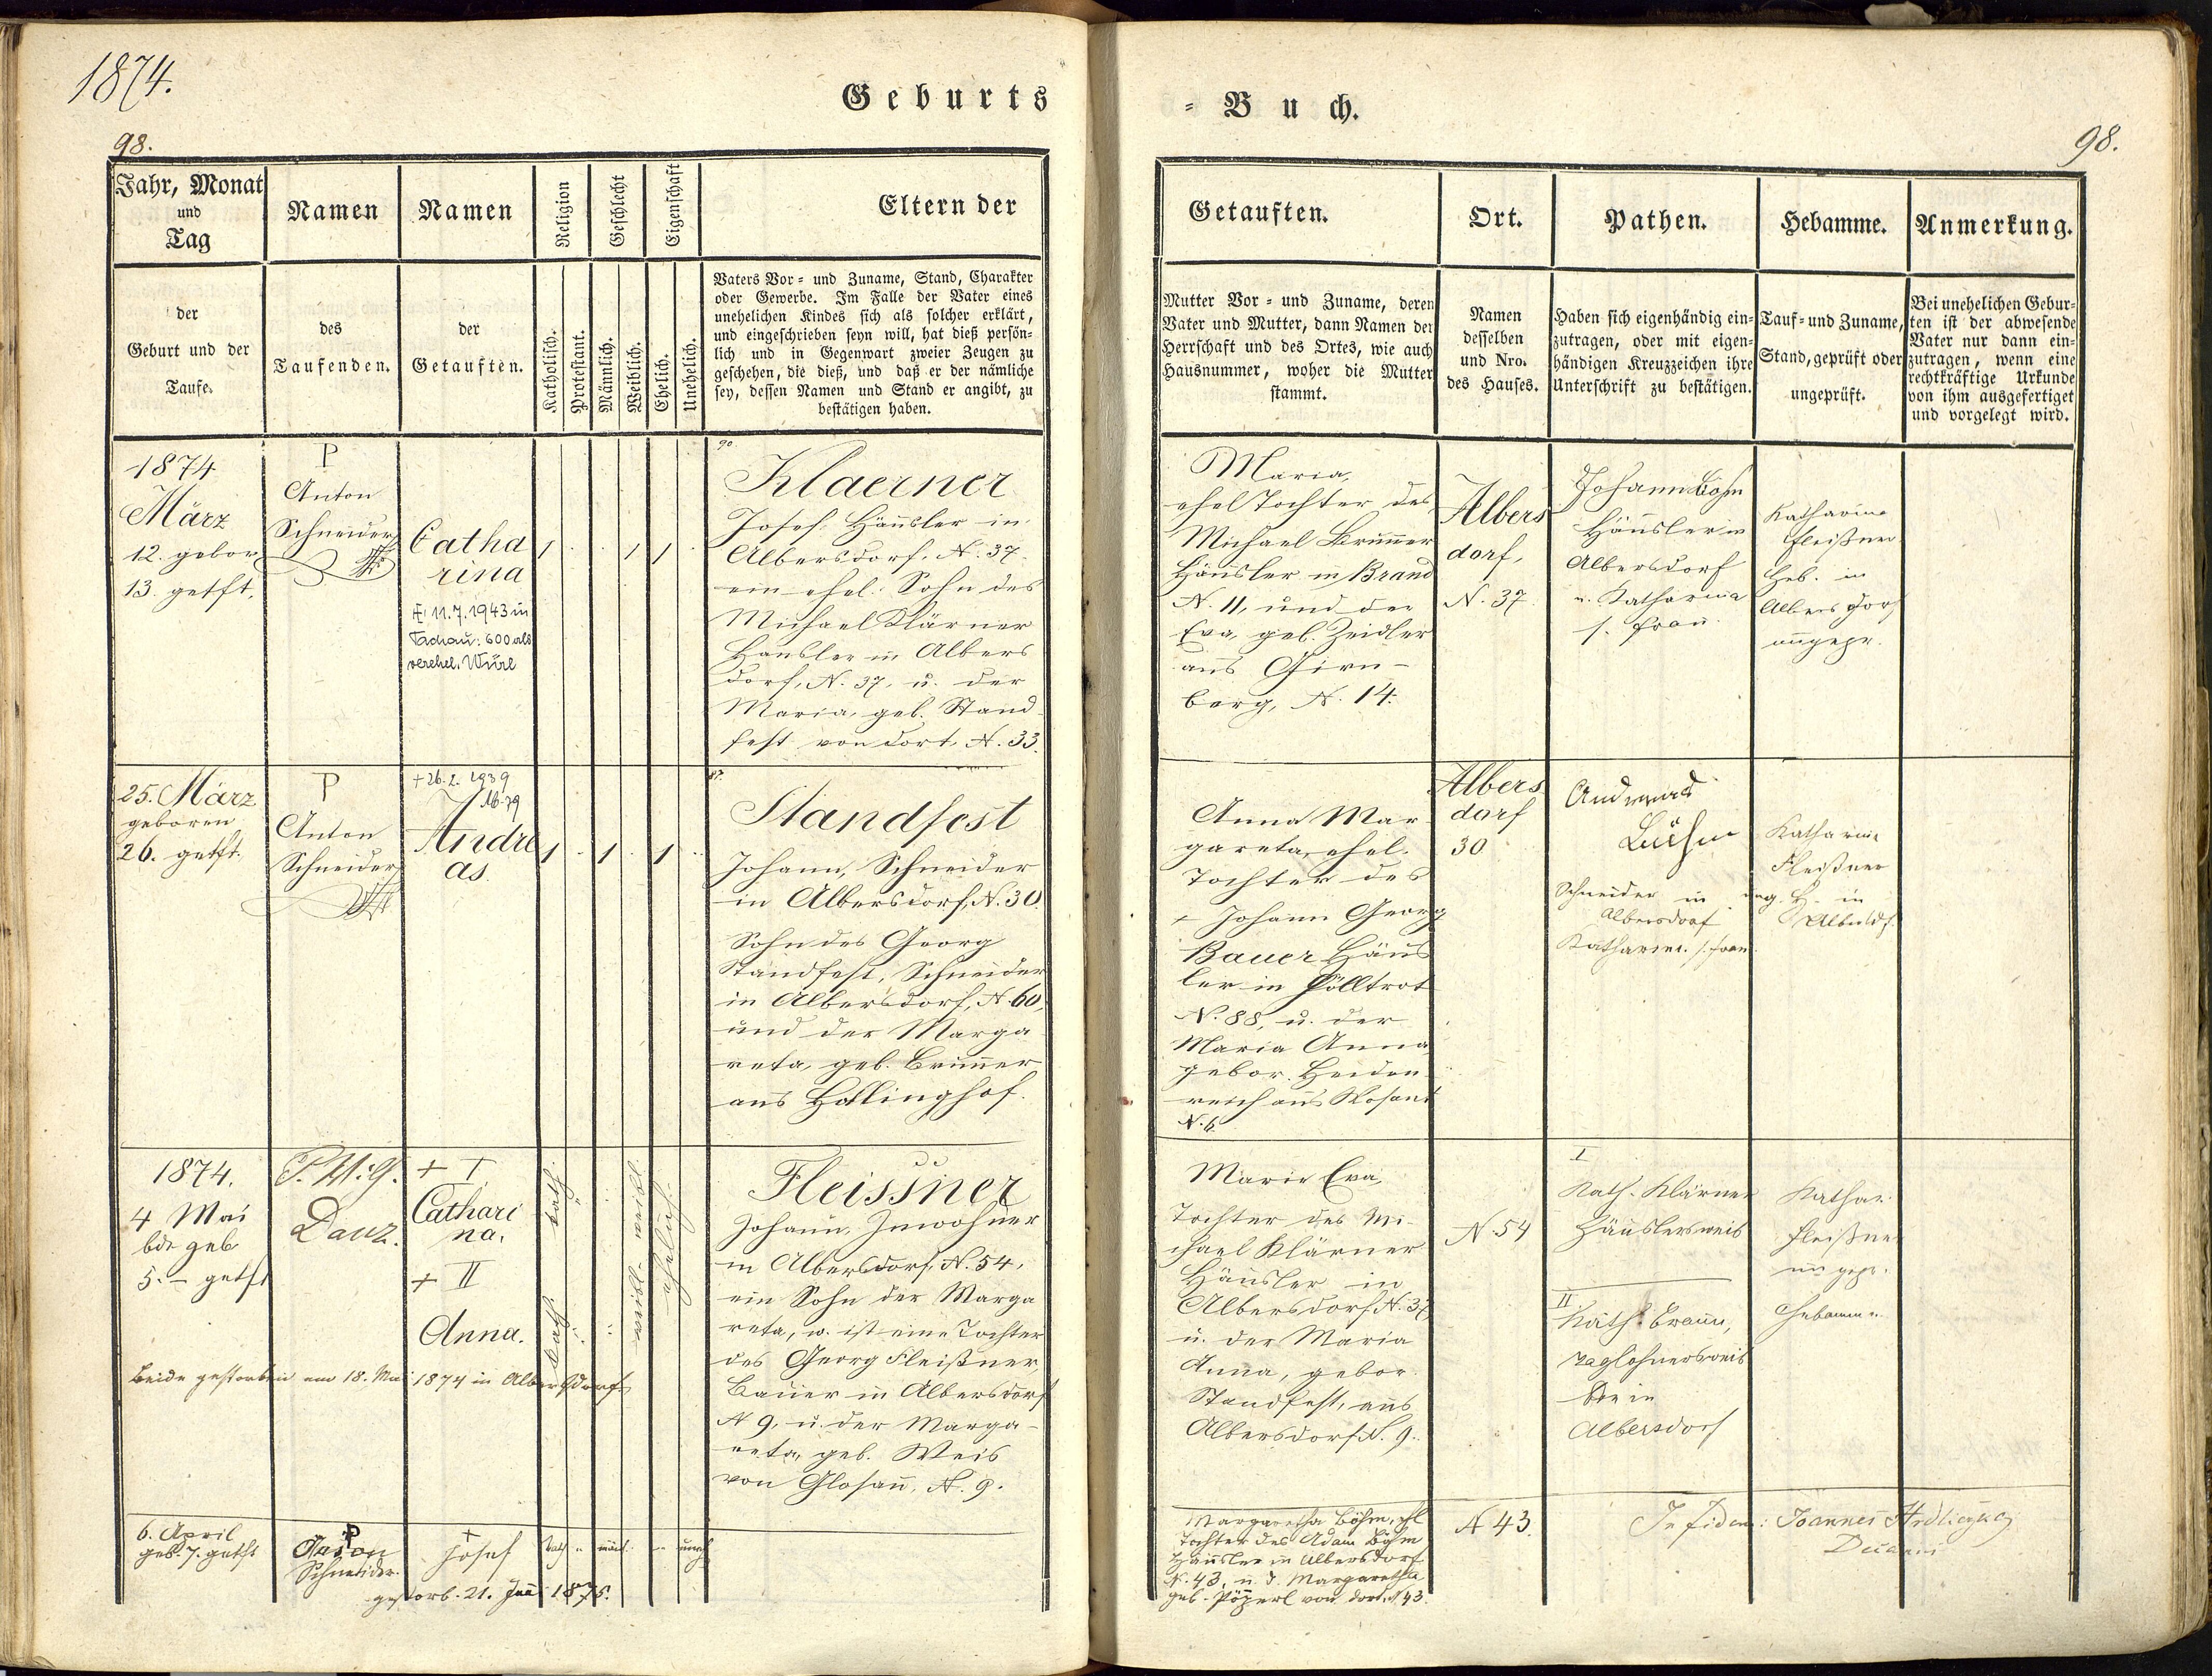 1874.
Geburts
98.
Jahr, Monat
und
Tag
Namen
Namen
Religion
Geschlecht
Eigenschaft
Eltern der
der
Geburt und der
Taufe.
des
Taufenden.
der
Getauften.
Katholisch.
Protestant.
Männlich.
Weiblich.
Ehelich.
Unehelich.
Vaters Vor- und Zuname, Stand, Charakter
oder Gewerbe. Im Falle der Vater eines
unehelichen Kindes sich als solcher erklärt,
und eingeschrieben seyn will, hat dieß persön-
lich und in Gegenwart zweier Zeugen zu
geschehen, die dieß, und daß er der nämliche
sey, dessen Namen und Stand er angibt, zu
bestätigen haben.
1874
März
12. gebor
13. getft.
P
Anton
Schneider
Catha
rina
11.7.1943 in
Tachau: 600 als
verehel. Würl
1 1 1
90.
Klaerner
Josef, Häusler in
Albersdorf, N. 37.
ein ehel. Sohn des
Michael Klärner
Häusler in Albers
dorf, N. 37, u. der
Maria, geb. Stand
fest von dort, N. 33.
25. März
geboren
26. getft.
P
Anton
Schneider
+26.2.1939
Andre
as.
1 1 1
Standfest
Johann, Schneider
in Albersdorf, N. 30.
Sohn des Georg
Standfest, Schneider
in Albersdorf, N. 60,
und der Marga
reta, geb. Brunner
aus Hollinghof.
1874.
4 Mai
bde geb
5. – getft
P. M. G.
Danz.
+ I
Cathari
na.
+ II
Anna.
kath.
kath.
weibl. weibl.
ehelich
Beide gestorben am 18. Mai 1874 in Albersdorf
Fleissner
Johann, Inwohner
in Albersdorf, N. 54,
ein Sohn der Marga
reta, w. ist eine Tochter
des Georg Fleißner,
Bauer in Albersdorf
N 9, u. der Marga-
reta, geb. Weis
von Glosau, N. 9.
6. April
geb. 7. getft
P
Anton
Schneider.
+
Josef
kath
unehl
gestorb. 21. 1875.
- Buch.
98.
Getauften.
Ort.
Pathen.
Hebamme.
Anmerkung.
Mutter Vor- und Zuname, deren
Vater und Mutter, dann Namen der
Herrschaft und des Ortes, wie auch
Hausnummer, woher die Mutter
stammt.
Namen
desselben
und Nro.
des Hauses.
Haben sich eigenhändig ein-
zutragen, oder mit eigen-
händigen Kreuzzeichen ihre
Unterschrift zu bestätigen.
Tauf- und Zuname,
Stand, geprüft oder
ungeprüft.
Bei unehelichen Gebur-
ten ist der abwesende
Vater nur dann ein-
zutragen, wenn eine
rechtkräftige Urkunde
von ihm ausgefertiget
und vorgelegt wird.
Maria,
ehel Tochter des
Michael Brunner
Häusler in Brand
N. 11, und der
Eva, geb. Zeidler
aus Girn-
berg, N. 14.
Albers
dorf,
N. 37.
Johann Böhm
Häusler in
Albersdorf
u. Katharina
s. Frau.
Katharina
Fleißner
Heb. in
Albersdorf
ungepr.
Anna Mar
gareta, ehel.
Tochter des
+ Johann Georg
Bauer Häus
ler in Hölltrot
N. 88, u. der
Maria Anna
gebor. Heiden
reich aus
N. 6.
Albers
dorf
30
Andreas
Böhm
Schneider in
Albersdorf
Katharina s. Frau.
Katharina
Fleißner
ung. H. in
Albersdf.
Marie Eva,
Tochter des Mi-
chael Klärner
Häusler in
Albersdorf N. 37
u. der Maria
Anna, gebor.
Standfest, aus
Albersdorf N. 9.
N. 54
I
Kath. Klärner
Häuslersweib
II.
Kath. Braun,
Taglöhnersweib
bde in
Albersdorf
Kathar.
Fleißner
ungepr.
Hebamme.
Margaretha Böhm, ehl
Tochter des Adam Böhm
Häusler in Albersdorf
N. 43, u. d. Margaretha
geb. Pöpperl von dort N 43.
N 43.
In fidem: Joannes